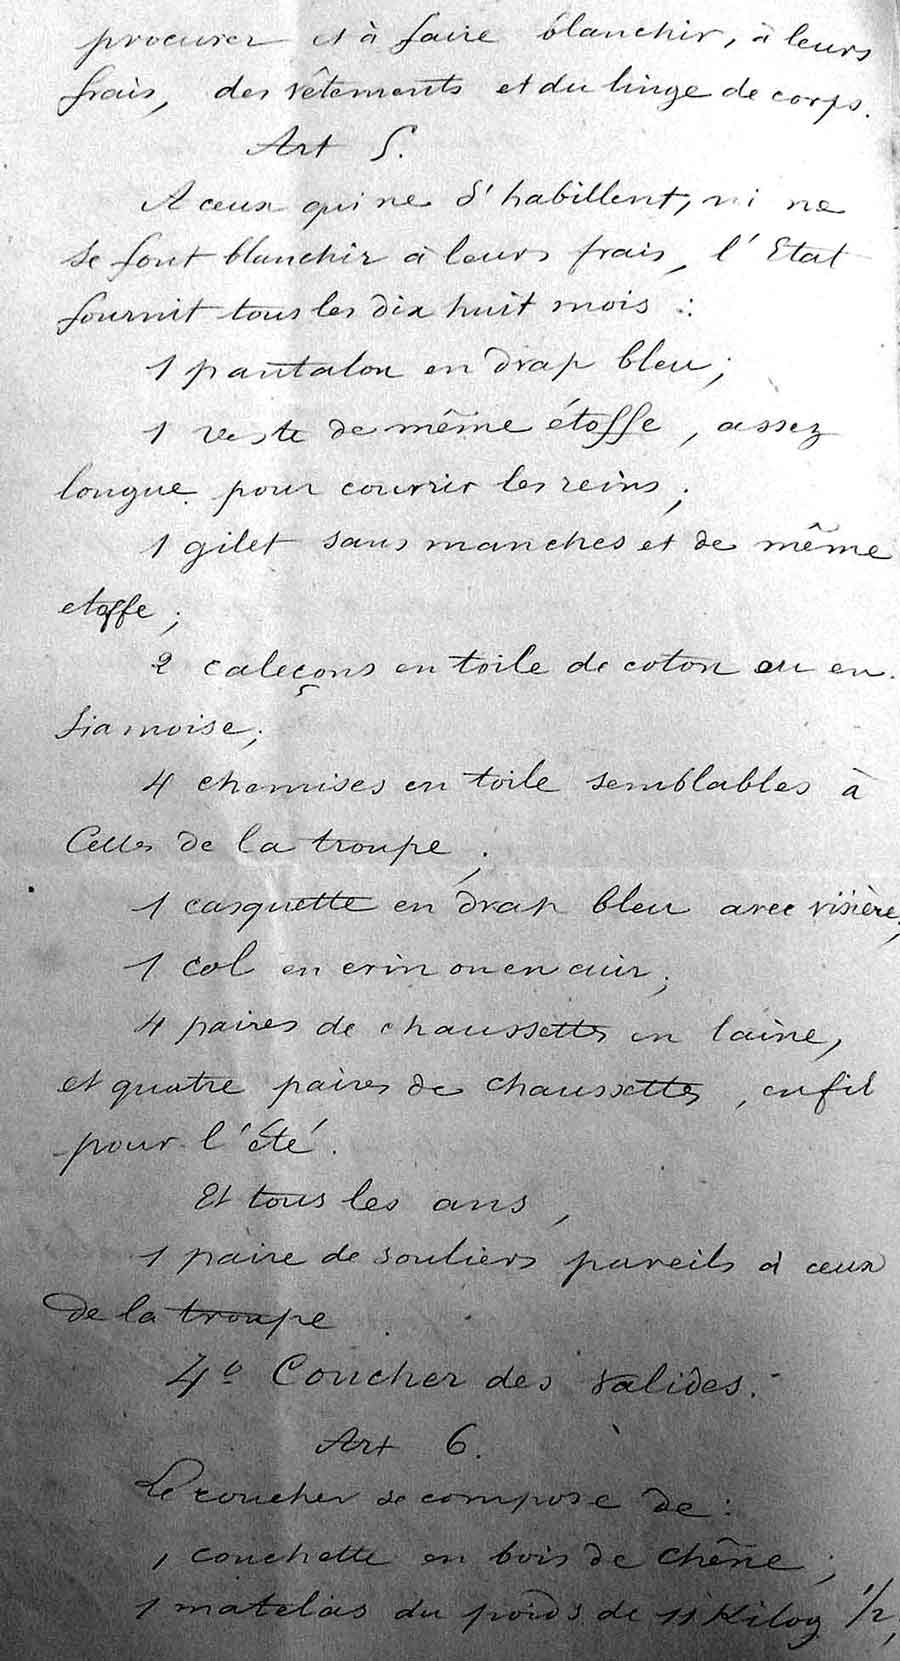 procurer et à faire blanchir, à leurs
frais, des vêtements et du linge de corps.
Art 5.
A ceux qui ne s'habillent, ni ne
se font blanchir à leurs frais, l'Etat
fournit tous les dix huit mois :
1 pantalon en drap bleu ;
1 veste de même étoffe, assez
longue pour couvrir les reins ;
1 gilet sans manches et de même
etoffe ;
2 caleçons en toile de coton ou en
siamoise ;
4 chemises en toile semblables à
Celles de la troupe ;
1 casquette en drap bleu avec visière ;
1 col en crin ou en cuir ;
4 paires de chaussettes en laine,
et quatre paires de chaussettes, en fil
pour l'été.
Et tous les ans,
1 paire de souliers pareils à ceux
de la troupe.
4º Coucher des valides.
Art 6.
Le coucher se compose de :
1 couchette en bois de chêne ;
1 matelas du poids de 11 Kilog 1/2,